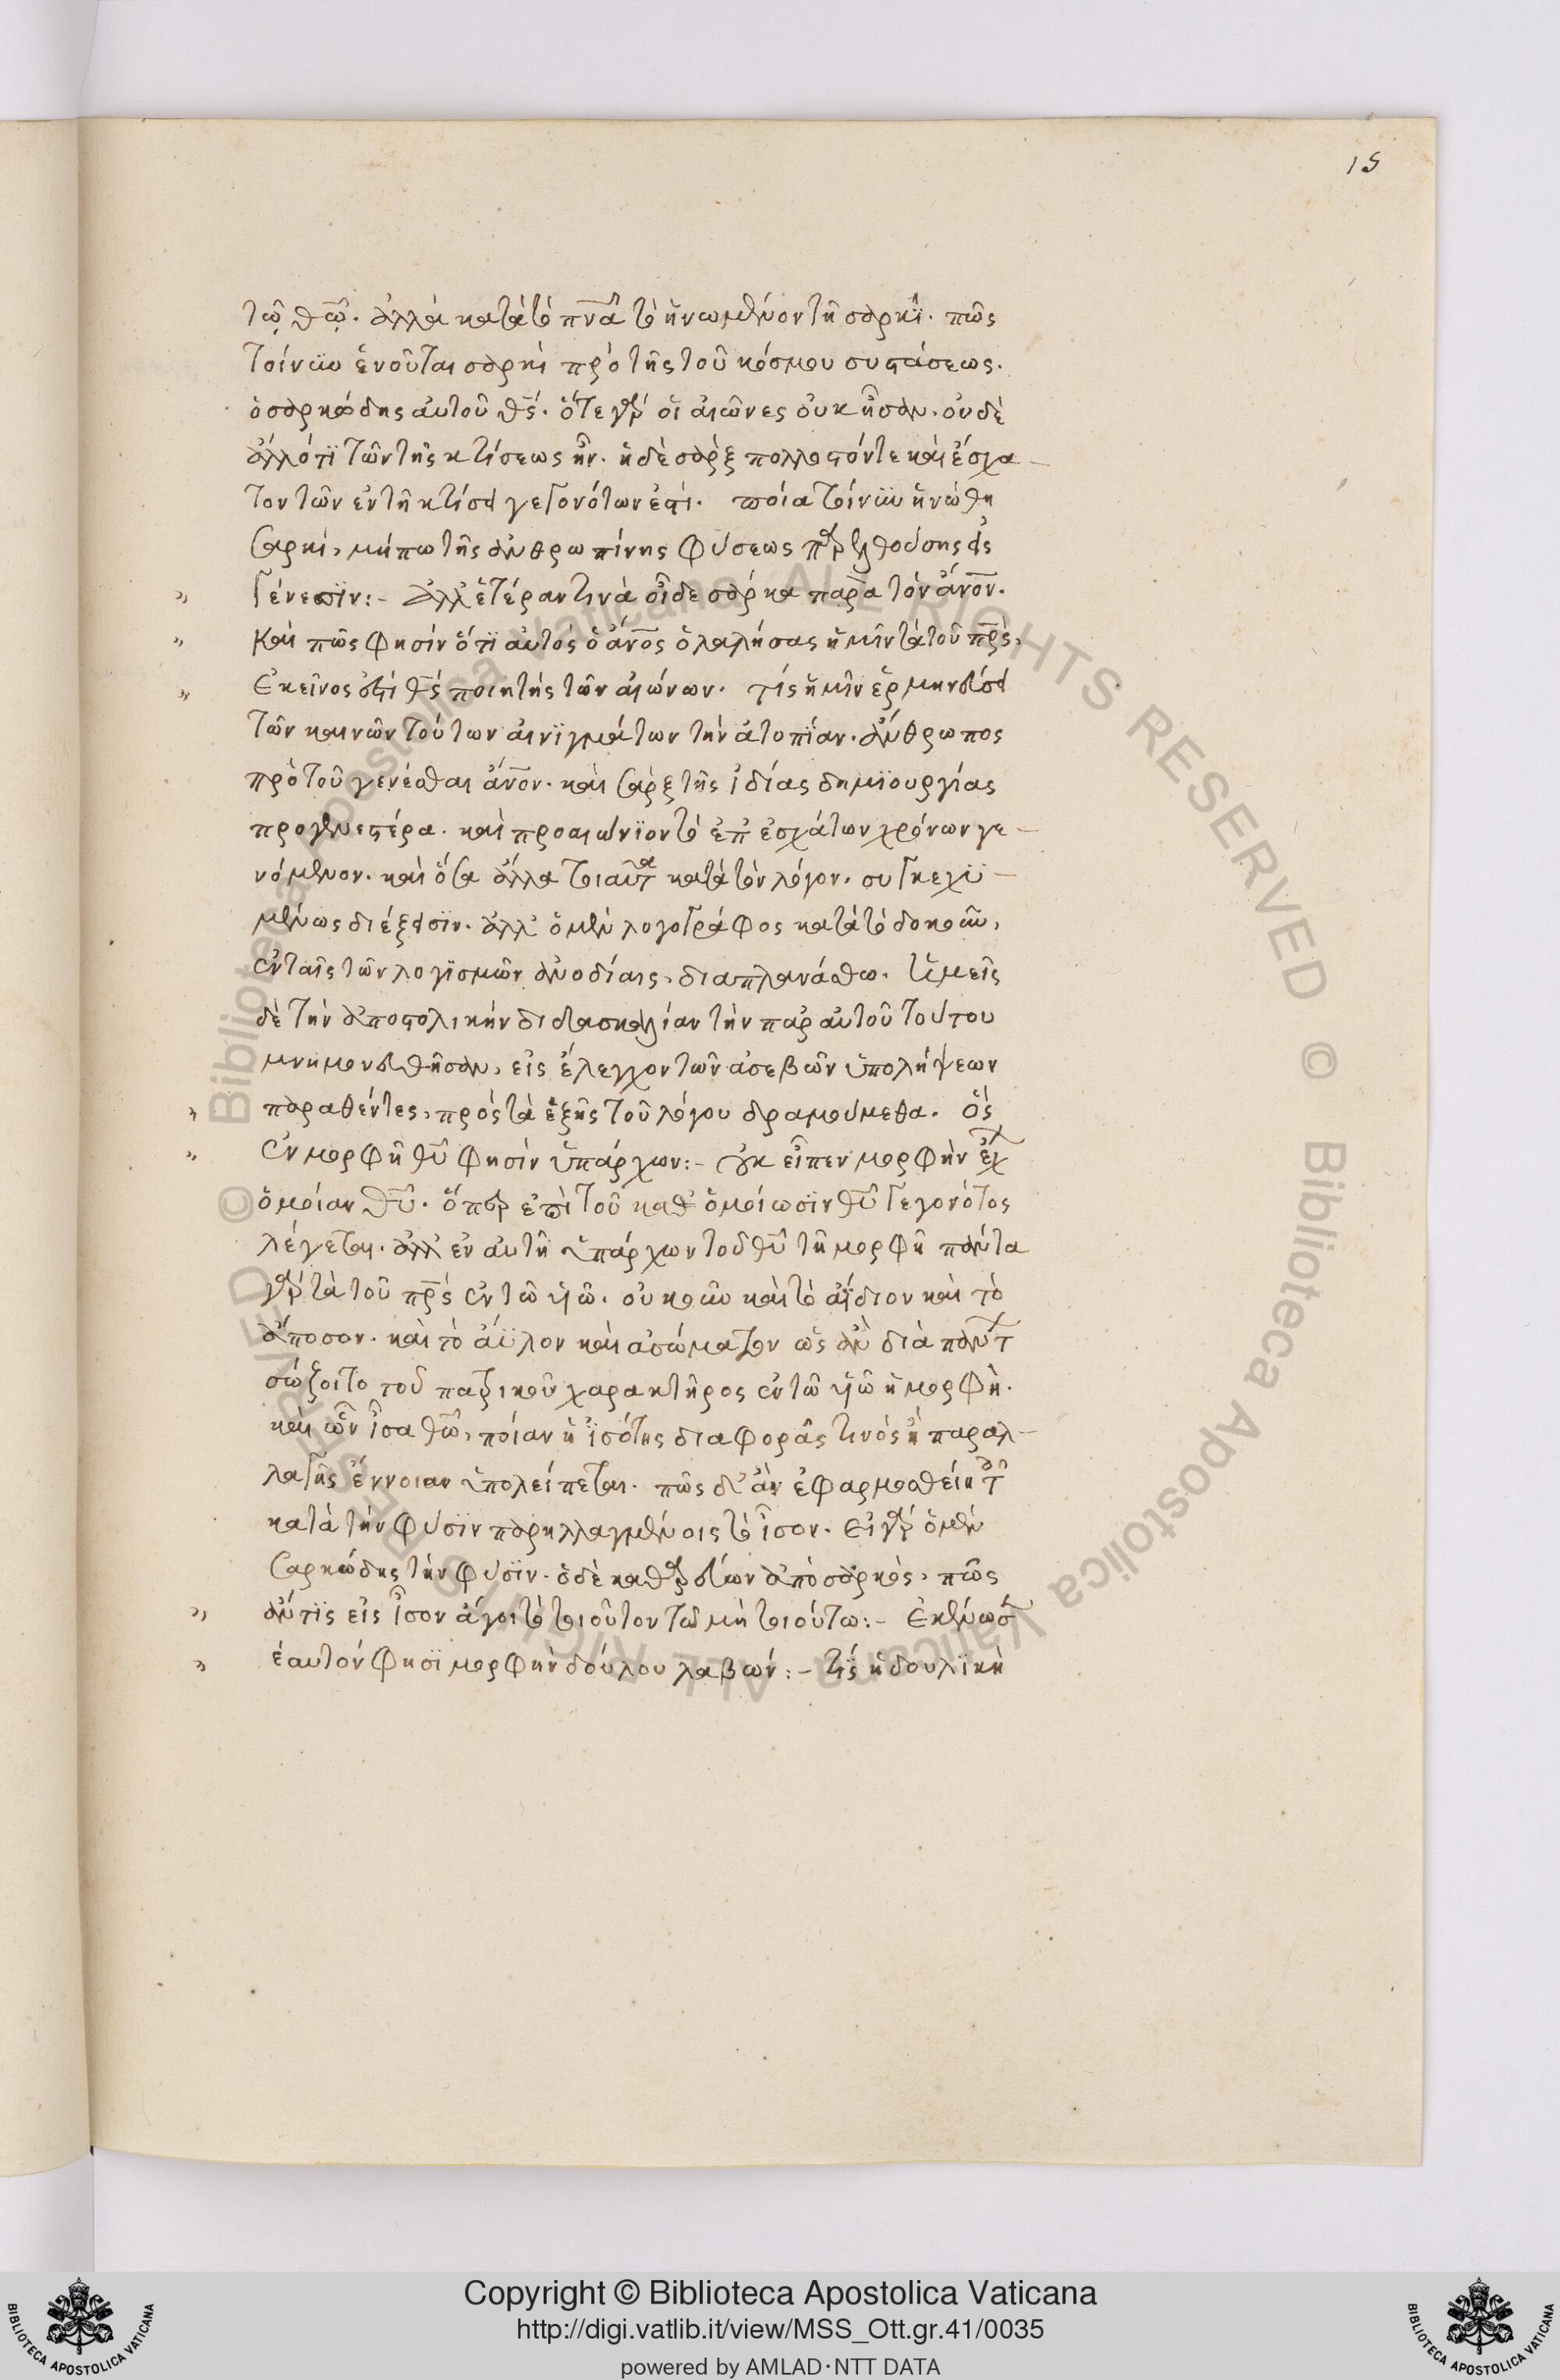 15
τῶ θῶ. ἀλλὰ κατὰ τὸ πνᾶ τὸ ἡνωμένον τῇ σαρκΐ. πῶς
τοίνυν ἑνοῦται σαρκὶ πρὸ τῆς τοῦ κόσμου συστάσεως.
ὁ σαρκώδης αὐτοῦ θς. ὅτε γὰρ οἱ αἰῶνες οὐκ ἦσαν. οὐδὲ
ἄλλό τϊ τῶν τῆς κτίσεως ἦν. ἡ δὲ σὰρξ πολλοστόν τε καὶ ἔσχα-
τον τῶν ἐν τῇ κτίσει γεγονότων ἐστί. ποία τοίνυν ἡνώθη
σαρκί, μήπω τῆς ἀνθρωπίνης φύσεως παρελθούσης εἰς
γένεσϊν:- ἀλλ' ἑτέραν τινὰ οἶδε σάρκα παρὰ τὸν ἄνον.
καὶ πῶς φησὶν ὅτϊ αὐτὸς ὁ ἄνος ὁ λαλήσας ἡμῖν τὰ τοῦ πρς,
ἐκεῖνος ἐστὶ θς ποιητὴς τῶν αἰώνων. τίς ἡμῖν ἑρμηνεύσει
τῶν καινῶν τούτων αἰνϊγμάτων τὴν ἀτοπΐαν. ἄνθρωπος
πρὸ τοῦ γενέσθαι ἄνον. καὶ σὰρξ τῆς ἰδίας δημϊουργίας
προγενεστέρα. καὶ προαιώνϊον τὸ ἐπ' ἐσχάτων χρόνων γε-
νόμενον. καὶ ὅσα ἄλλα τοιαῦτα κατὰ τὸν λόγον. συγκεχϋ-
μένως διέξεισϊν. ἀλλ' ὁ μὲν λογογράφος κατὰ τὸ δοκοῦν,
ἐν ταῖς τῶν λογϊσμῶν ἀνοδίαις, διαπλανάσθω. ἡμεῖς
δὲ τὴν ἀποστολικὴν διδασκαλίαν τὴν παρ αὐτοῦ τούτου
μνημονευθῆσαν, εἰς ἔλεγχον τῶν ἀσεβῶν ὑπολήψεων
παραθέντες, πρὸς τὰ ἑξῆς τοῦ λόγου δραμούμεθα. ὃς
ἐν μορφῇ θῦ φησὶν ὑπάρχων:- οὐκ εἶπεν μορφὴν ἔχ
ὁμοίαν θῦ. ὅπερ ἐπὶ τοῦ καθ' ὁμοίωσϊν θῦ γεγονότος
λέγεται. ἀλλ' ἐν αὐτῇ ὑπάρχων τοῦ θῦ τῇ μορφῇ πάντα
γὰρ τὰ τοῦ πρς ἐν τῶ υἱῶ. οὐκοῦν καὶ τὸ ἀΐδιον καὶ τὸ
ἄποσον. καὶ τὸ ἄϋλον καὶ ἀσώματον ὡς ἂν διὰ πάντ
σώζοιτο τοῦ πατρικοῦ χαρακτῆρος ἐν τῶ υἱῶ ἡ μορφή.
καὶ ὧν ἶσα θῶ, ποίαν ἡ ἰσότης διαφορᾶς τινὸς ἢ παραλ-
λαγῆς ἔννοιαν ὑπολείπεται. πῶς δ' ἂν ἐφαρμοσθείη τοῖς
κατὰ τὴν φύσϊν παρηλλαγμένοις τὸ ἶσον. εἰ γὰρ ὁ μὲν
σαρκώδης τὴν φύσϊν. ὁ δὲ καθαρεύων ἀπὸ σαρκός, πῶς
ἄν τϊς εἰς ἶσον ἄγοι τὸ τοιοῦτον τῶ μὴ τοιούτω:- ἐκένωσ
ἑαυτὸν φησϊ μορφὴν δούλου λαβών:- τίς ἡ δουλϊκὴ
© Biblioteca Apostolica Vaticana ALL RIGHTS RESERVED © Biblioteca Apostolica Vaticana ALL RIGHTS RESERVED
Copyright © Biblioteca Apostolica Vaticana
http://digi.vatlib.it/view/MSS_Ott.gr.41/0035
powered by AMLAD·NTT DATA
BIBLIOTECA APOSTOLICA VATICANA
BIBLIOTECA APOSTOLICA VATICANA